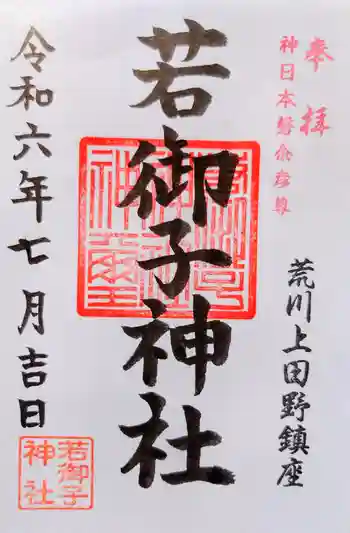 奉拝
神日本磐余彦尊
荒川上田野鎮座
若御子神社
令和六年七月吉日
若御子
神社